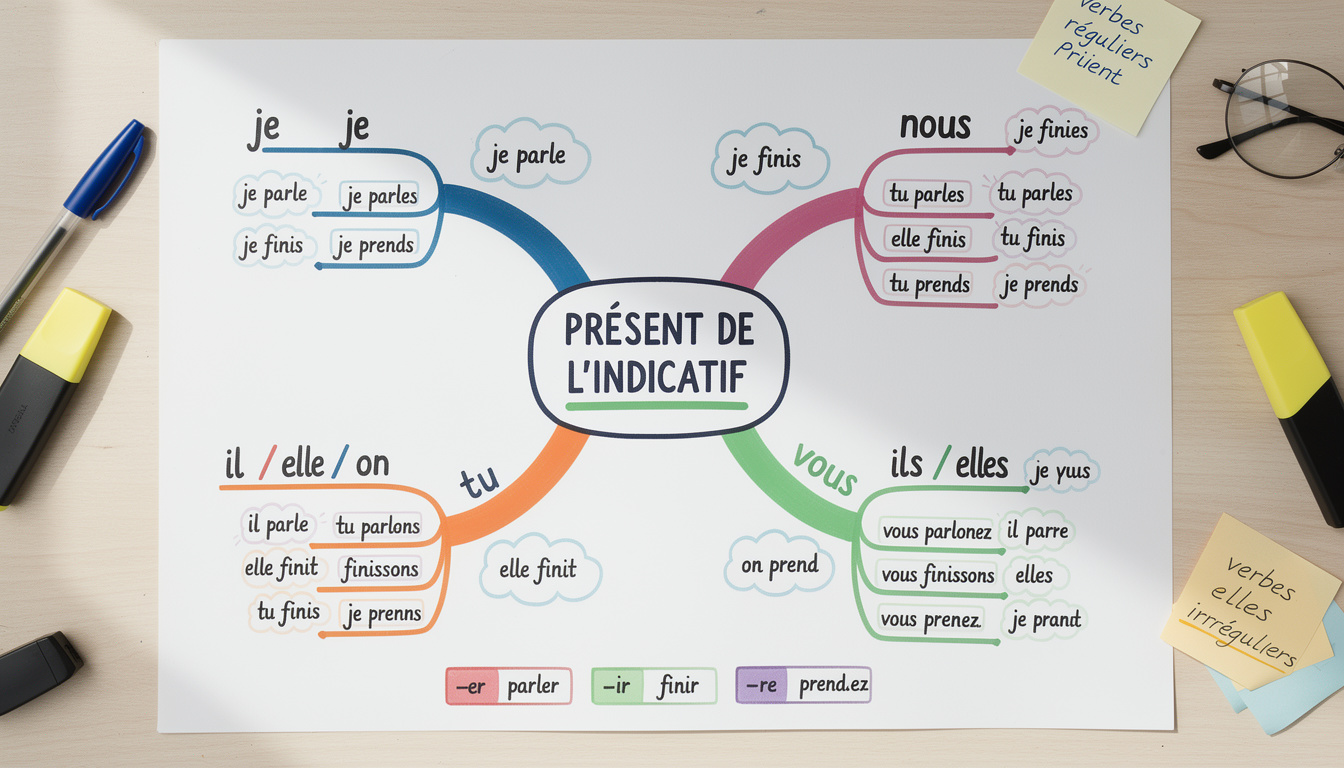 verbes
réguliers
Priient
je je
je parle
je parle je parles
je finis je prends
je finis
nous je finies
tu parles tu parles
elle finis tu finis
tu prends je prends
PRÉSENT DE
L'INDICATIF
il / elle / on
tu
il parle tu parlons
elle finit finissons
tu finis je prenns
elle finit
vous
ils / elles
vous parlonez il parre
vous finissons elles
vous prenez. je prandt
on prend
-er parler
-ir finir
-re prend.ez
verbes
elles
irrréguliers